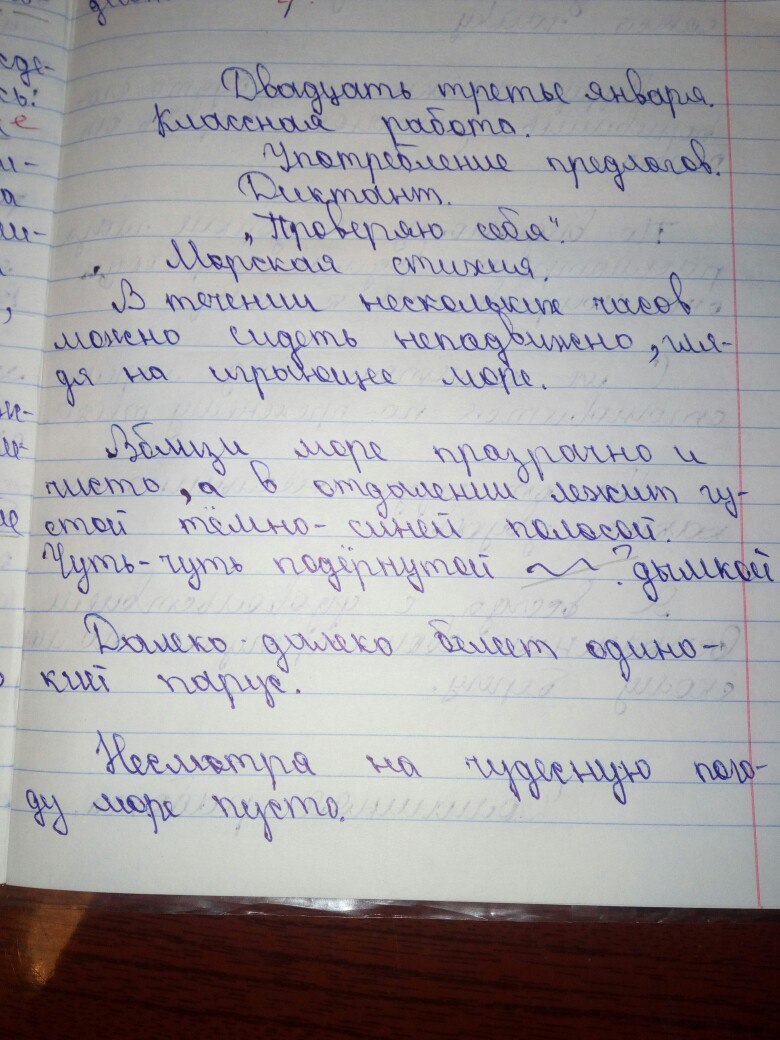 Двадцать третье января.
Классная работа.
Употребление предлогов.
Диктант.
„Проверяю себя".
Морская стихия.
В течении нескольких часов
можно сидеть неподвижно, гля-
дя на игрывающее море.
Вблизи море празрачно и
чисто, а в отдалении лежит гу-
стой тёмно-синей полосой.
Чуть-чуть подёрнутой ? дымкой
Далеко-далеко белеет одино-
кий парус.
Несмотра на чудесную пого-
ду море пусто.